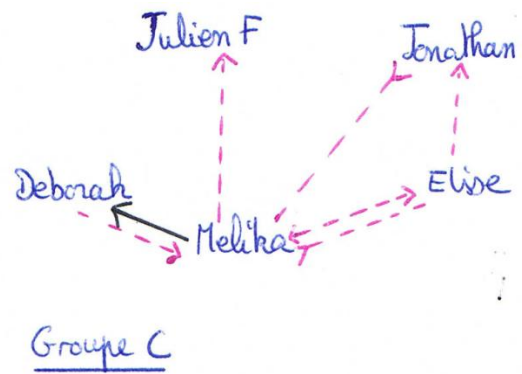 Julien F
Jonathan
Deborah
Elise
Melika
Groupe C